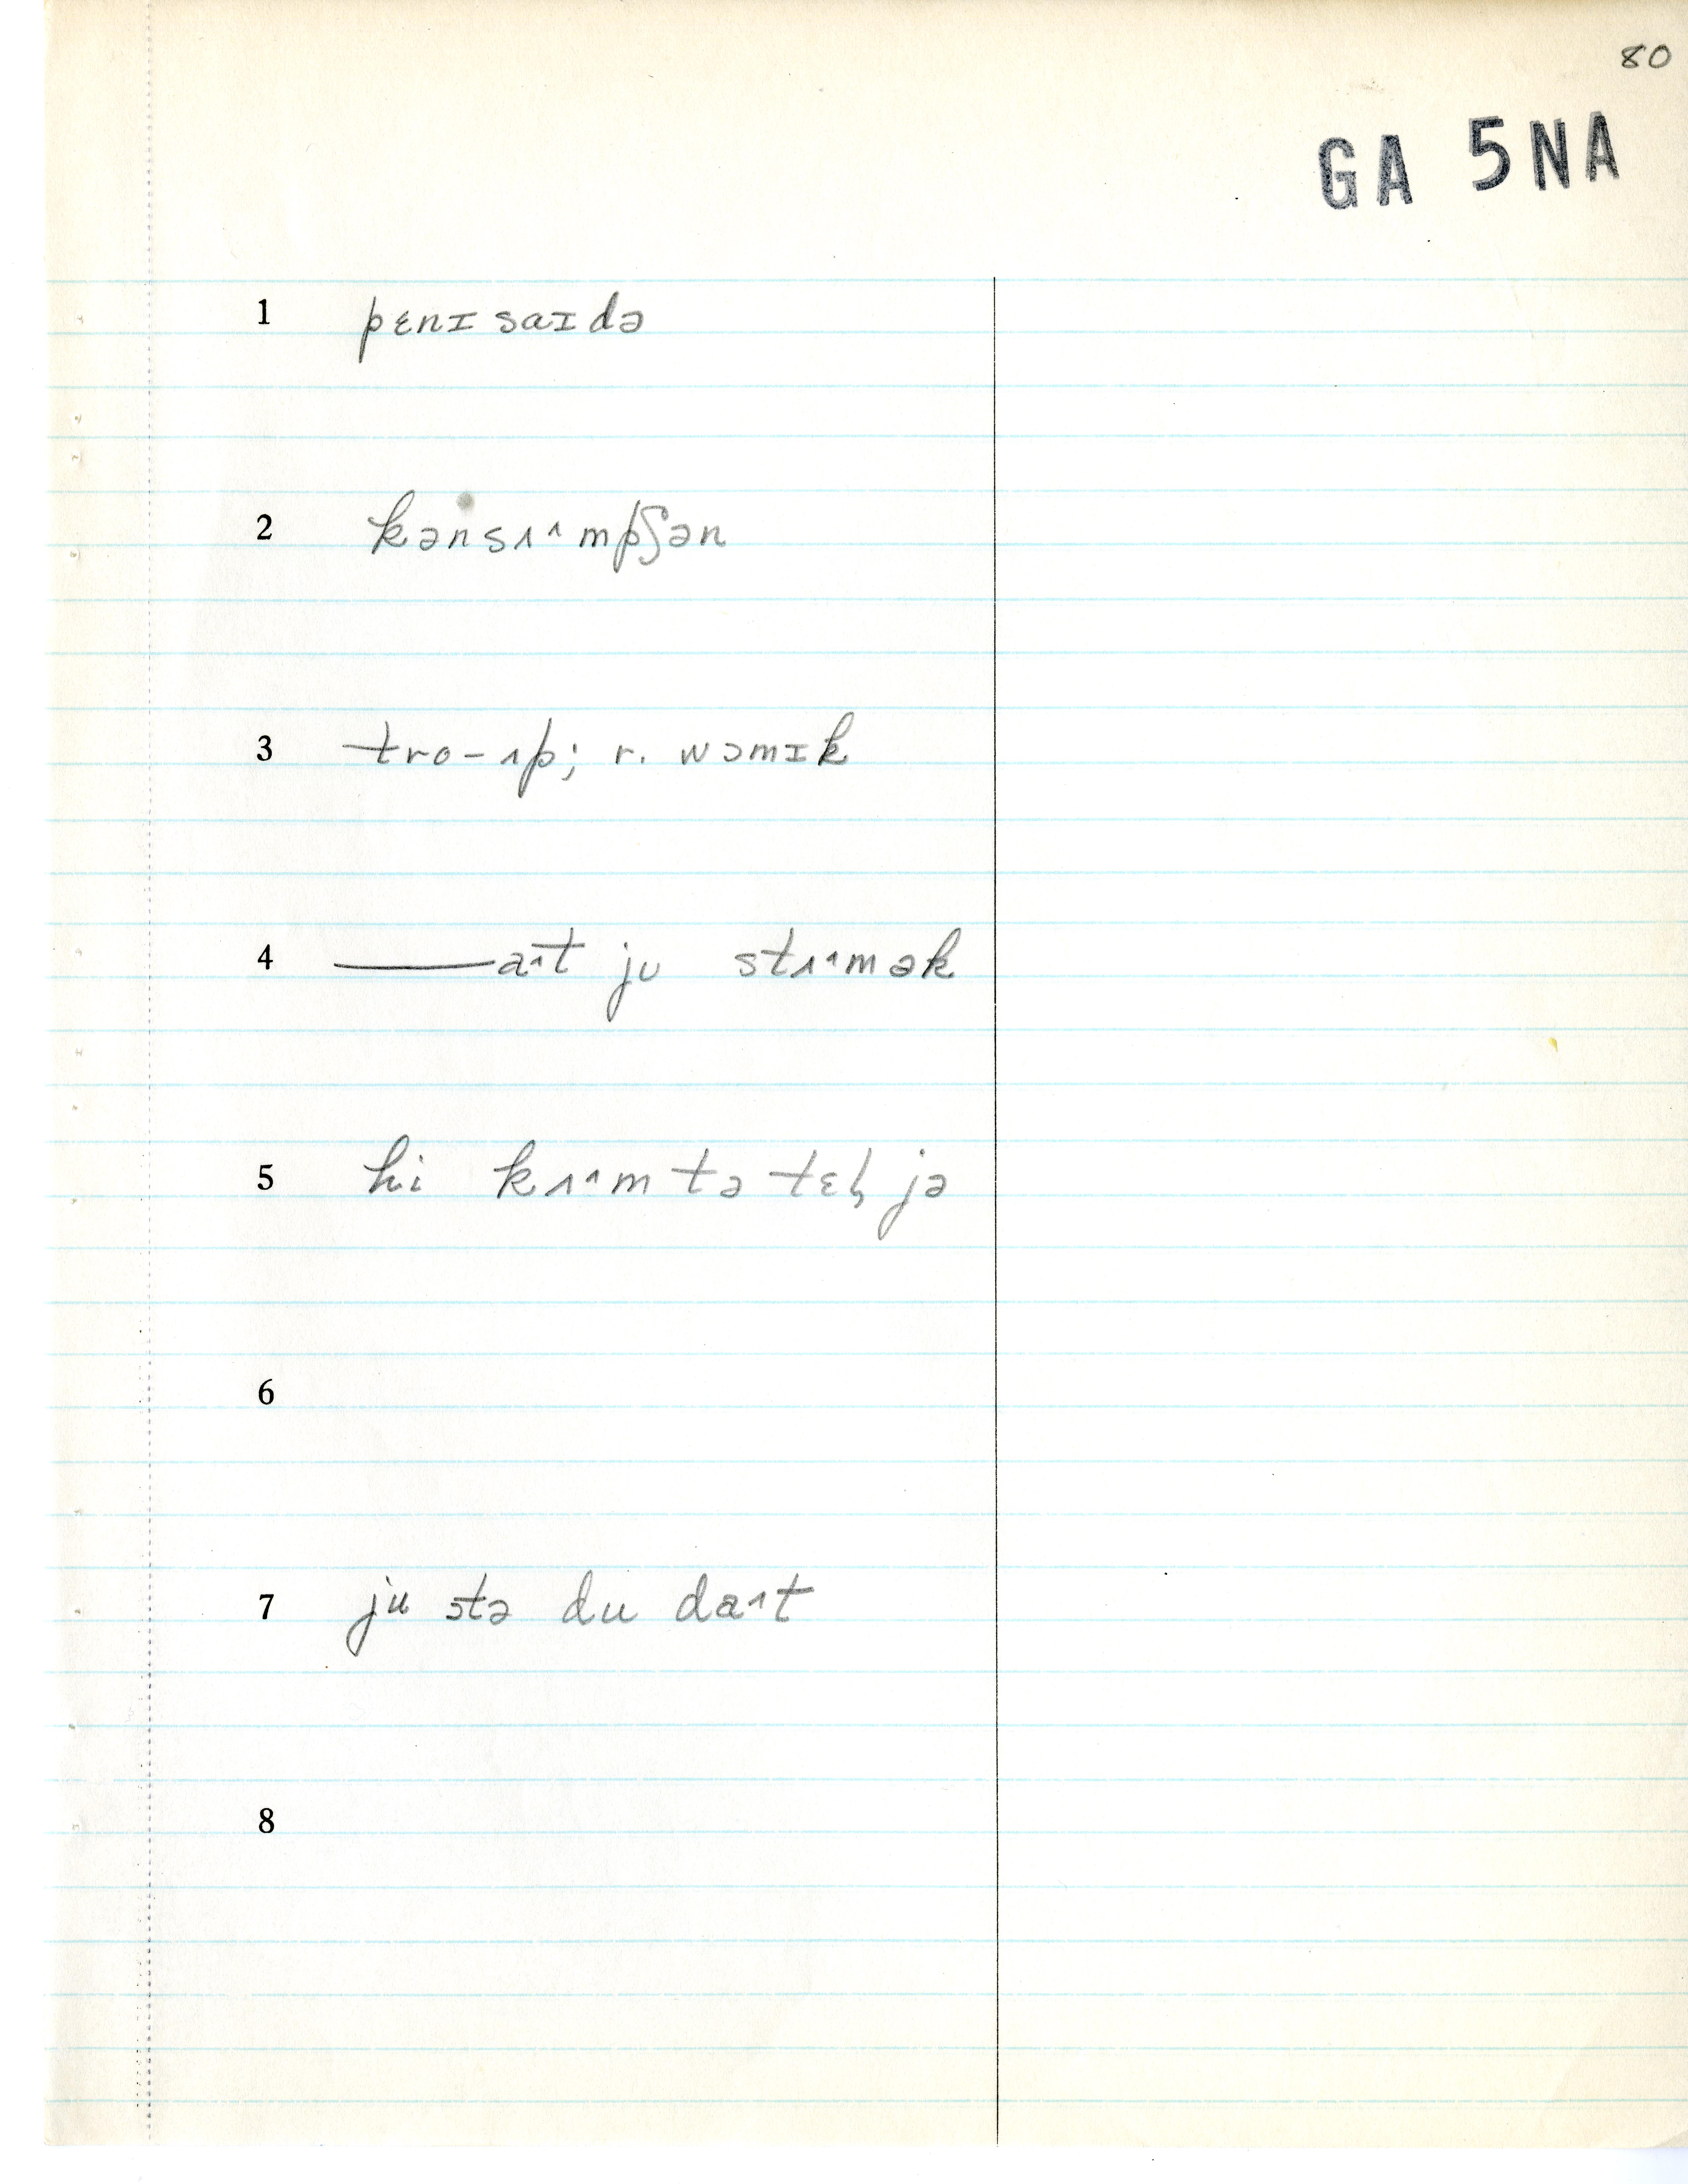 80
GA 5NA
1 pɛnɪsaɪdə
2 kənsʌ˄mpʃən
3 tro-ʌp; r. wɔmɪk
4 ———aʌt jʊ stʌ˄mək
5 hi kʌ˄m tə tɛɫ jə
6
7 ju stə du daʌt
8